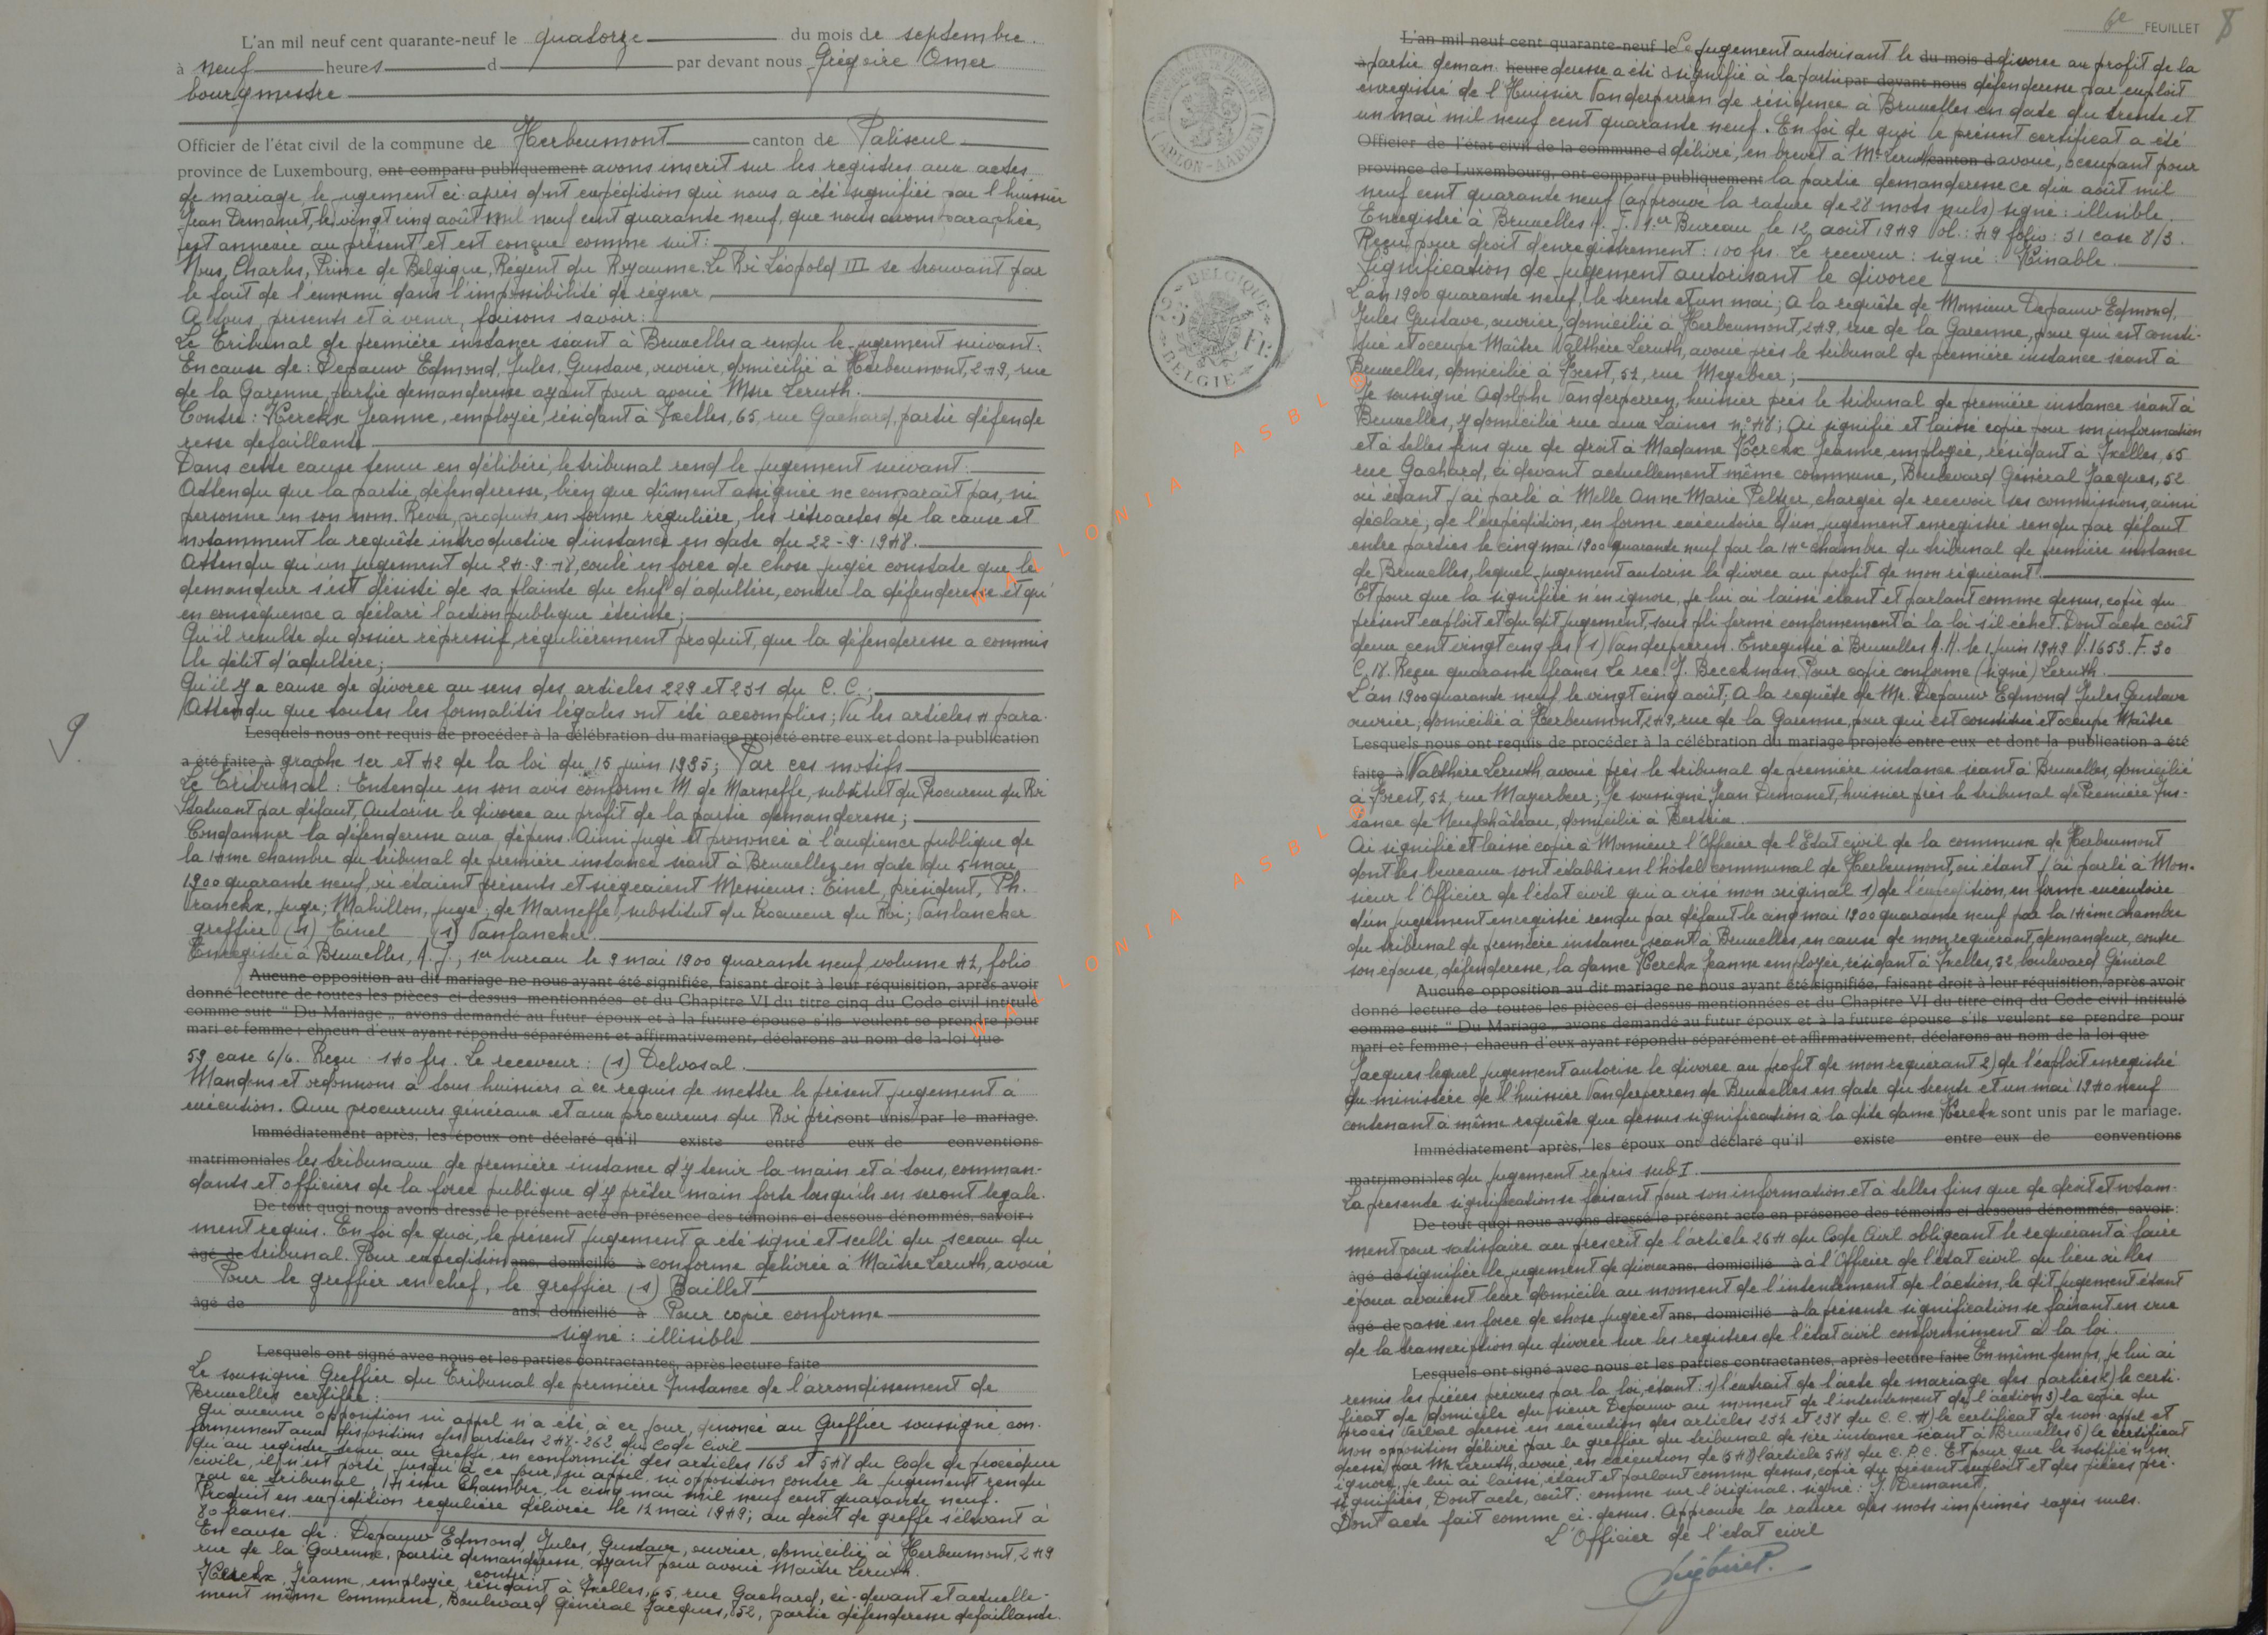 L'an mil neuf cent quarante-neuf le quatorze du mois de septembre
à neuf heures d par devant nous Grégoire Omer
bourgmestre
Officier de l'état civil de la commune de Herbeumont canton de Paliseul
province de Luxembourg, ont comparu publiquement avons inscrit sur les registres aux actes
de mariage, le jugement ci-après dont expédition qui nous a été signifiée par l'huissier
Jean Demanet, le vingt cinq août mil neuf cent quarante neuf, que nous avons paraphée,
est annexée au présent et est conçue comme suit:
Nous, Charles, Prince de Belgique, Régent du Royaume. Le Roi Léopold III se trouvant par
le fait de l'ennemi dans l'impossibilité de régner,
A tous, présents et à venir, faisons savoir:
Le Tribunal de première instance séant à Bruxelles a rendu le jugement suivant:
En cause de: Depauw Edmond, Jules, Gustave, ouvrier, domicilié à Herbeumont, 249, rue
de la Garenne partie demanderesse ayant pour avoué Mtre Leruth.
Contre: Kerckx Jeanne, employée, résidant à Ixelles, 65, rue Gachard, partie défende
resse defaillante
Dans cette cause tenue en délibéré, le tribunal rend le jugement suivant:
Attendu que la partie défenderesse, bien que dûment assignée ne comparaît pas, ni
personne en son nom. Revu, produits en forme regulière, les rétroactes de la cause et
notamment la requête introductive d'instance en date du 22-9-1948.
Attendu qu'un jugement du 24-9-48, coulé en force de chose jugée constate que le
demandeur s'est désisté de sa plainte du chef d'adultère, contre la défenderesse et qu'
en conséquence a déclaré l'action publique éteinte;
Qu'il résulte du dossier répressif, régulièrement produit, que la défenderesse a commis
le délit d'adultère;
Qu'il y a cause de divorce au sens des articles 229 et 231 du C. C.;
Attendu que toutes les formalités légales ont été accomplies; Vu les articles 4 para-
Lesquels nous ont requis de procéder à la célébration du mariage projeté entre eux et dont la publication
a été faite à graphe 1er et 42 de la loi du 15 juin 1935; Par ces motifs
9.
Le Tribunal: Entendu en son avis conforme M. de Marneffe, substitut du Procureur du Roi
Statuant par défaut, Autorise le divorce au profit de la partie demanderesse;
Condamner la défenderesse aux dépens. Ainsi jugé et prononcé à l'audience publique de
la 14me chambre du tribunal de première instance séant à Bruxelles en date du 5 mai
1900 quarante neuf, où étaient présents et siégeaient Messieurs: Einel, président, Ph.
Vranckx, juge; Mahillon, juge; de Marneffe, substitut du Procureur du Roi; Vanlancker
greffier (s) Einel (s) Vanlancker.
Enregistré à Bruxelles, A.J., 1er bureau le 9 mai 1900 quarante neuf, volume 42, folio
Aucune opposition au dit mariage ne nous ayant été signifiée, faisant droit à leur réquisition, après avoir
donné lecture de toutes les pièces ci-dessus mentionnées et du Chapitre VI du titre cinq du Code civil intitulé
comme suit " Du Mariage „ avons demandé au futur époux et à la future épouse s'ils veulent se prendre pour
mari et femme ; chacun d'eux ayant répondu séparément et affirmativement, déclarons au nom de la loi que
59 case 6/6. Reçu: 140 frs. Le receveur: (s) Delvosal.
Mandons et ordonnons à tous huissiers à ce requis de mettre le présent jugement à
exécution. Aux procureurs généraux et aux procureurs du Roi près sont unis par le mariage.
Immédiatement après, les époux ont déclaré qu'il existe entre eux de conventions
matrimoniales les tribunaux de première instance d'y tenir la main et à tous, comman-
dants et officiers de la force publique d'y prêter main forte lorsqu'ils en seront legale-
De tout quoi nous avons dressé le présent acte en présence des témoins ci-dessous dénommés, savoir :
ment requis. En foi de quoi, le présent jugement a été signé et scellé du sceau du
âgé de tribunal. Pour expédition ans, domicilié à conforme délivrée à Maître Leruth, avoué
Pour le greffier en chef, le greffier (s) Baillet
âgé de ans, domicilié à Pour copie conforme
signé: illisible
Lesquels ont signé avec nous et les parties contractantes, après lecture faite
Le soussigné Greffier du Tribunal de première Instance de l'arrondissement de
Bruxelles certifie:
qu'aucune opposition ni appel n'a été, à ce jour, dénoncé au Greffier soussigné con-
formement aux dispositions des articles 248-262 du code civil
qu'au registre tenu au Greffe, en conformité des articles 163 et 548 du Code de procédure
civile, il n'est porté jusqu'à ce jour, ni appel, ni opposition contre le jugement rendu
par ce tribunal, 14ème Chambre, le cinq mai mil neuf cent quarante neuf.
Produit en expédition regulière délivrée le 12 mai 1949; au droit de greffe s'élevant à
80 francs.
En cause de: Depauw Edmond, Jules, Gustave, ouvrier, domicilié à Herbeumont, 249
rue de la Garenne, partie demanderesse, ayant pour avoué Maître Leruth.
contre:
Kerckx, Jeanne, employée, résidant à Ixelles, 65, rue Gachard, ci-devant et actuelle-
ment même Commune, Boulevard Général Jacques, 52, partie défenderesse defaillante.
6e FEUILLET 8
L'an mil neuf cent quarante-neuf le Le jugement autorisant le du mois d divorce au profit de la
à partie deman heure deresse a été d signifié à la partie par devant nous défenderesse par exploit
enregistré de l'Huissier Vanderperren de résidence à Bruxelles en date du trente et
un mai mil neuf cent quarante neuf. En foi de quoi le présent certificat a été
Officier de l'état civil de la commune d délivré, en brevet à Me Leruth canton d avoué, occupant pour
province de Luxembourg, ont comparu publiquement la partie demanderesse ce dix août mil
neuf cent quarante neuf (approuve la rature de 28 mots nuls) signé: illisible.
Enregistré à Bruxelles A. J. 1er Bureau le 12 août 1949 Vol.: 49 folio: 31 case 8/3.
Reçu pour droit d'enregistrement: 100 frs. Le receveur: signé: Vinable
Signification de jugement autorisant le divorce
L'an 1900 quarante neuf, le trente et un mai; A la requête de Monsieur Depauw Edmond,
Jules Gustave, ouvrier, domicilié à Herbeumont, 249, rue de la Garenne, pour qui est consti-
tué et occupe Maître Valthère Leruth, avoué près le tribunal de première instance séant à
Bruxelles, domicilié à Forest, 52, rue Meyebeer;
Je soussigné Adolphe Vanderperren, huissier près le tribunal de première instance séant à
Bruxelles, y domicilié rue aux Laines n° 48; Ai signifié et laissé copie pour son information
et à telles fins que de droit à Madame Kerckx Jeanne, employée, résidant à Ixelles, 65
rue Gachard, ci devant actuellement même commune, Boulevard Général Jacques, 52
où étant j'ai parlé à Melle Anne Marie Peltzer, chargée de recevoir ses commissions, ainsi
déclaré; de l'expédition, en forme exécutoire d'un jugement enregistré rendu par défaut
entre parties le cinq mai 1900 quarante neuf par la 14e chambre du tribunal de première instance
de Bruxelles, lequel jugement autorise le divorce au profit de mon réquérant.
Et pour que la signifiée n'en ignore, je lui ai laissé étant et parlant comme dessus, copie du
présent exploit et du dit jugement, sous pli fermé conformement à la loi s'il échet. Dont acte coût
deux cent vingt cinq frs (s) Vanderperren. Enregistré à Bruxelles A.H. le 1 juin 1949 V.1653. F. 30
C. 18. Reçu quarante francs Le rec. J. Beeckman. Pour copie conforme (signé) Leruth.
L'an 1900 quarante neuf le vingt cinq août; A la requête de Mr. Depauw Edmond Jules Gustave
ouvrier, domicilié à Herbeumont, 249, rue de la Garenne, pour qui est constitué et occupe Maître
Lesquels nous ont requis de procéder à la célébration du mariage projeté entre eux et dont la publication a été
faite à Valthère Leruth avoué près le tribunal de première instance séant à Bruxelles, domicilié
à Forest, 52, rue Mayerbeer; Je soussigné, Jean Demanet, huissier près le tribunal de Première Ins-
tance de Neufchâteau, domicilié à Bertrix.
Ai signifié et laissé copie à Monsieur l'Officier de l'Etat civil de la commune de Herbeumont
dont les bureaux sont établis en l'hôtel communal de Herbeumont, où étant j'ai parlé à Mon-
sieur l'Officier de l'état civil qui a visé mon original 1) de l'expédition, en forme exécutoire
d'un jugement enregistré rendu par défaut le cinq mai 1900 quarante neuf par la 14ème chambre
du tribunal de première instance séant à Bruxelles, en cause de mon requérant, demandeur, contre
son épouse, défenderesse, la dame Kerckx Jeanne employée, résidant à Ixelles, 52, boulevard Général
Aucune opposition au dit mariage ne nous ayant été signifiée, faisant droit à leur réquisition, après avoir
donné lecture de toutes les pièces ci-dessus mentionnées et du Chapitre VI du titre cinq du Code civil intitulé
comme suit " Du Mariage „ avons demandé au futur époux et à la future épouse s'ils veulent se prendre pour
mari et femme ; chacun d'eux ayant répondu séparément et affirmativement, déclarons au nom de la loi que
Jacques lequel jugement autorise le divorce au profit de mon requérant 2) de l'exploit enregistré
du ministère de l'huissier Vanderperren de Bruxelles en date du trente et un mai 1940 neuf
contenant à même requête que dessus signification à la dite dame Kerckx sont unis par le mariage.
Immédiatement après, les époux ont déclaré qu'il existe entre eux de conventions
matrimoniales du jugement repris sub I.
La présente signification se faisant pour son information et à telles fins que de droit et notam-
De tout quoi nous avons dressé le présent acte en présence des témoins ci-dessous dénommés, savoir :
ment pour satisfaire au prescrit de l'article 264 du Code Civil obligeant le requérant à faire
âgé de signifier le jugement de divorce ans, domicilié à à l'Officier de l'état civil du lieu où les
époux avaient leur domicile au moment de l'intentement de l'action, le dit jugement étant
âgé de passé en force de chose jugée et ans, domicilié à la présente signification se faisant en vue
de la transcription du divorce sur les registres de l'état civil conformément à la loi.
Lesquels ont signé avec nous et les parties contractantes, après lecture faite En même temps, je lui ai
remis les pièces prévues par la loi, étant: 1) l'extrait de l'acte de mariage des parties 2) le certi-
ficat de domicile du sieur Depauw au moment de l'intentement de l'action 3) la copie du
procès verbal dressé en exécution des articles 232 et 238 du C. C. 4) le certificat de non appel et
non opposition délivré par le greffier du tribunal de 1ère instance séant à Bruxelles 5) le certificat
dressé par Me Leruth, avoué, en exécution de l'article 548 du C.P.C. Et pour que le notifié n'en
ignore, je lui ai laissé, étant et parlant comme dessus, copie du présent exploit et des pièces pré-
signifiées, Dont acte, coût: comme sur l'original. signé: J. Demanet,
Dont acte fait comme ci-dessus. Approuve la rature des mots imprimés rayés nuls.
L'Officier de l'état civil
ARLON-AARLEN
BELGIQUE
5 Fr.
BELGIE
WALLONIA ASBL ©
WALLONIA ASBL ©